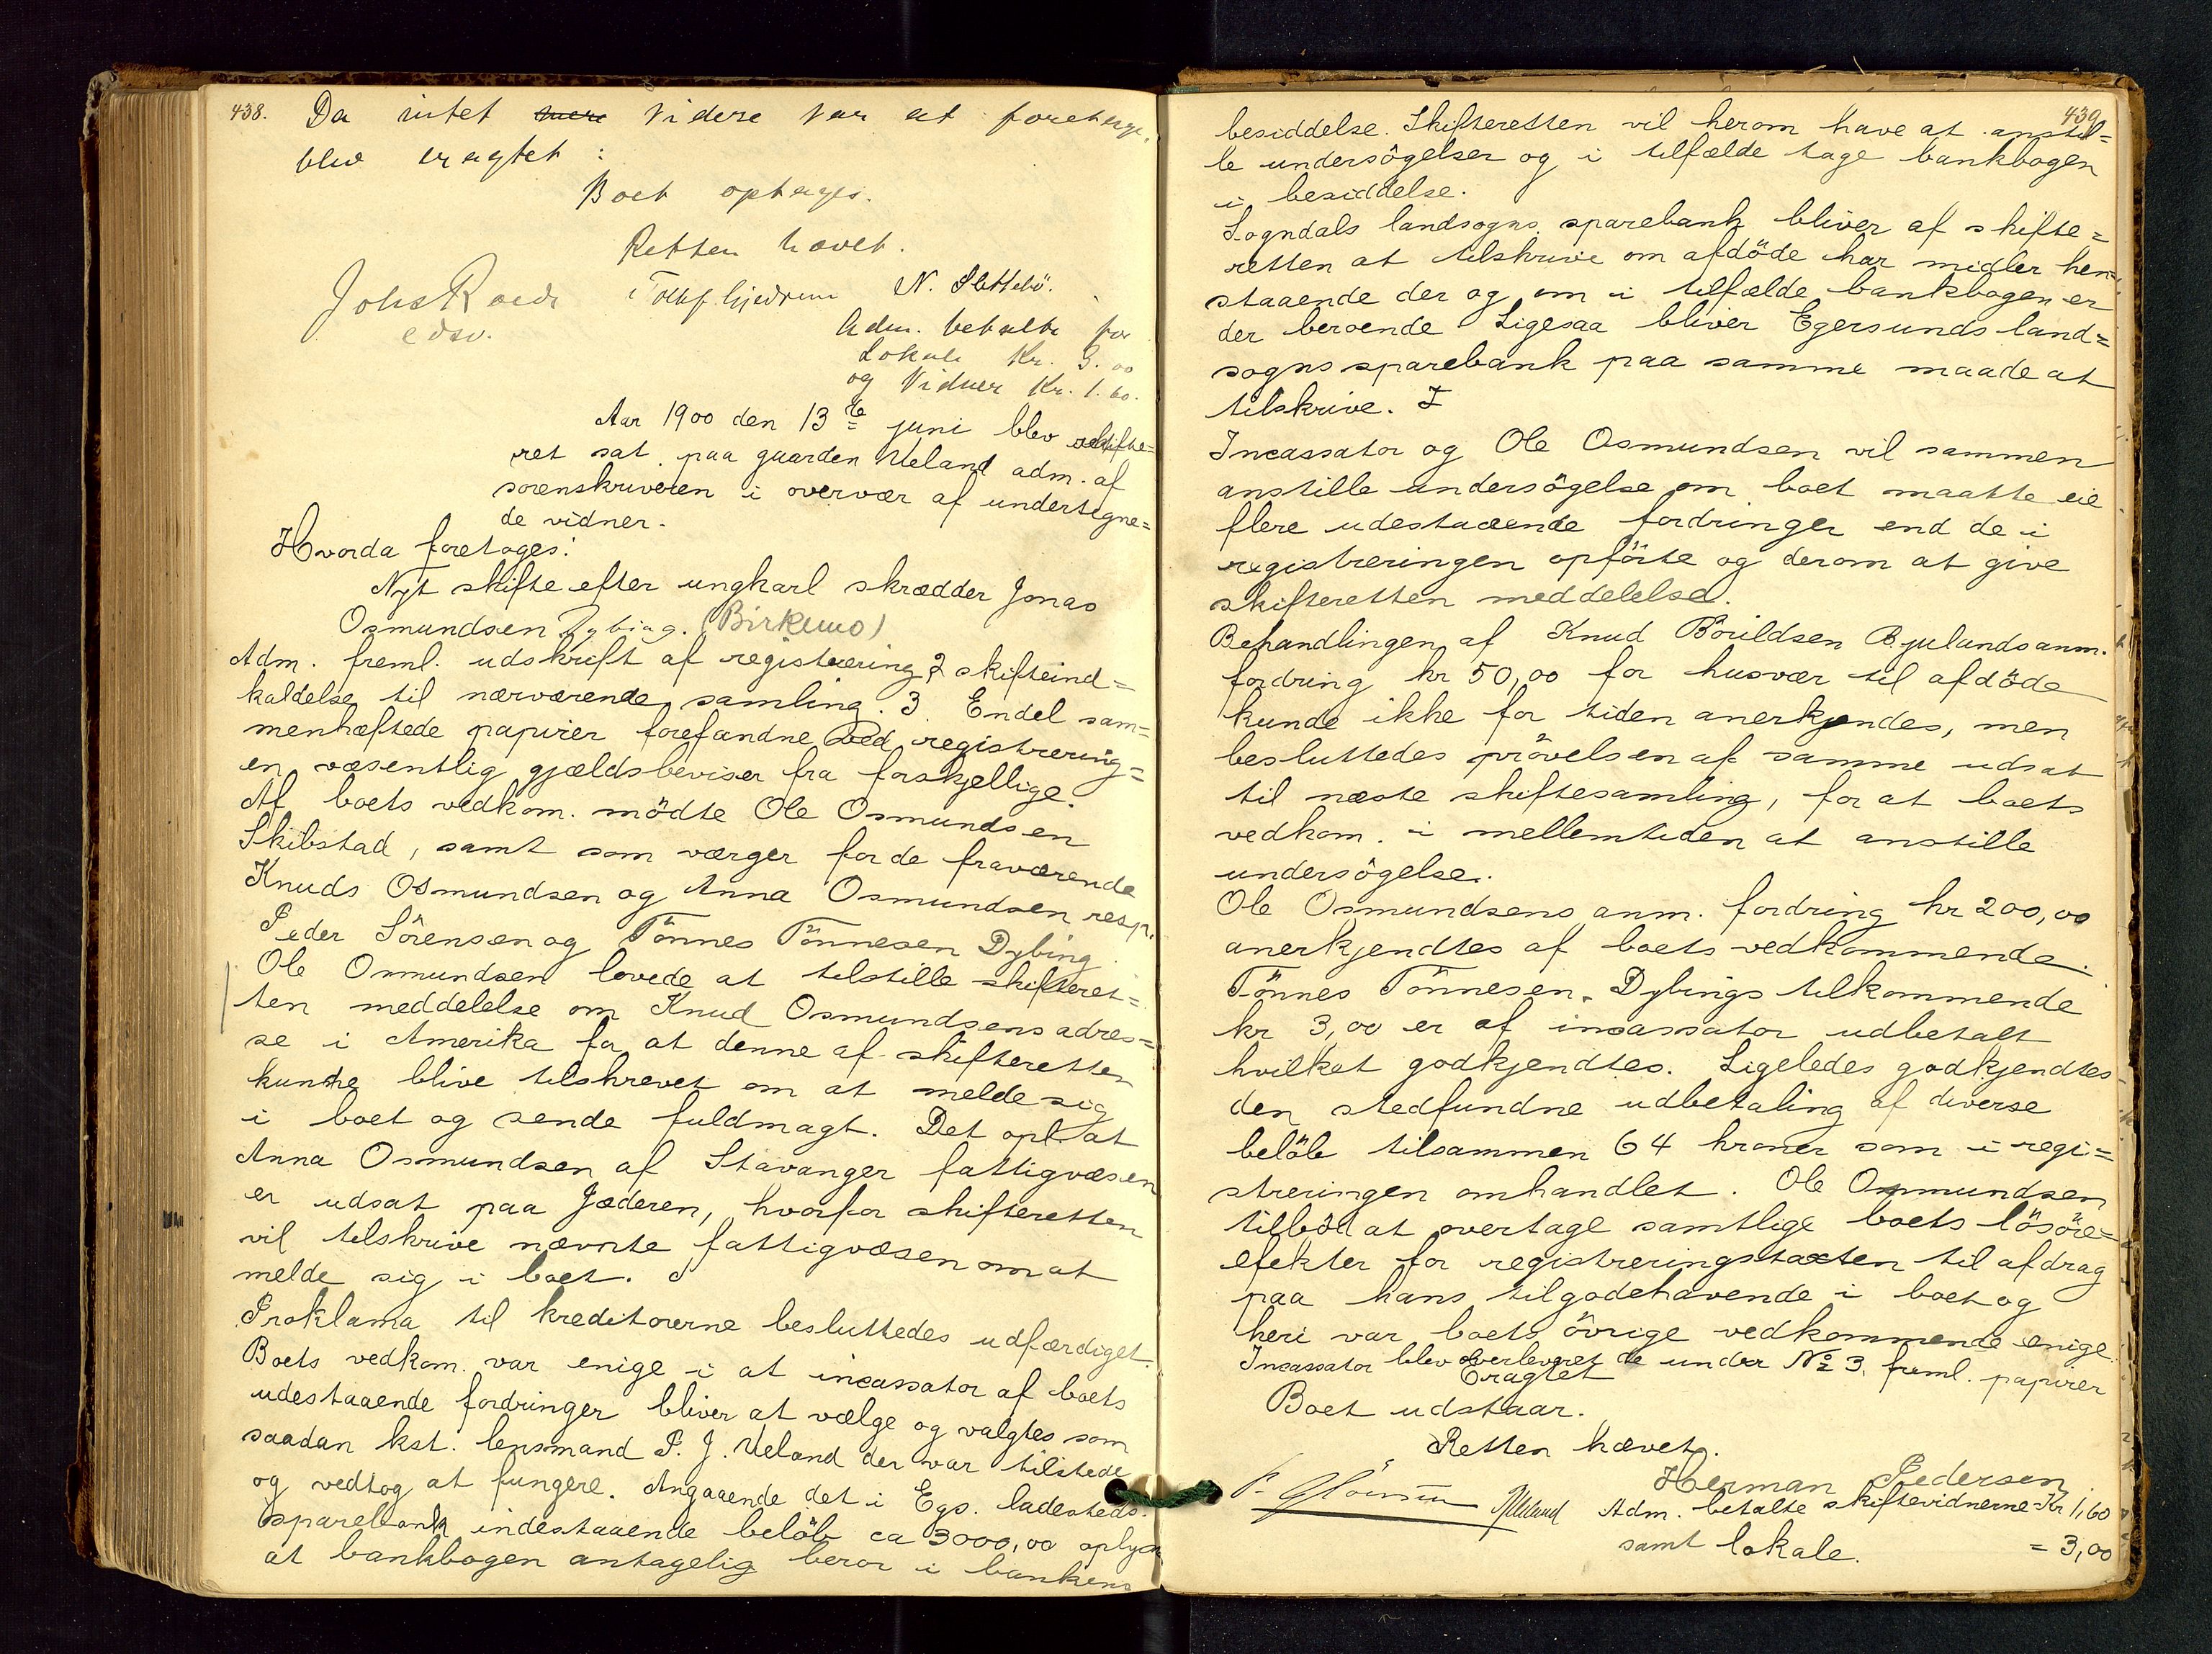 438.
Da intet videre var at foretage,
blev eragtet:
Boet optages.
Retten hævet.
N. Slettebö.
edsv.
Adm. betalte for
Lokale Kr. 3.00
og Vidner Kr. 1.60.
Aar 1900 den 13de juni blev skifte=
ret sat paa gaarden Ueland adm. af
sorenskriveren i overvær af undertegne=
de vidner.
Hvorda foretoges:
Nyt skifte efter ungkarl skrædder Jonas
Osmundsen Dybing. (Birkemo)
Adm. freml. udskrift af registrering, 2 skifteind=
kaldelse til nærværende samling. 3. Endel sam=
menhæftede papirer forefandne ved registrering=
en væsentlig gjældsbeviser fra forskjellige.
Af boets vedkom. mödte Ole Osmundsen
Skibstad, samt som værger for de fraværende
Knuds Osmundsen og Anna Osmundsen resp.
Peder Sörensen og Tönnes Tönnesen Dybing.
Ole Osmundsen lovede at tilstille skifteret=
ten meddelelse om Knud Osmundsens adres=
se i Amerika for at denne af skifteretten
kunde blive tilskrevet om at melde sig
i boet og sende fuldmagt. Det opl. at
Anna Osmundsen af Stavanger fattigvæsen
er udsat paa Jæderen, hvorfor skifteretten
vil tilskrive nævnte fattigvæsen om at
melde sig i boet.
Proklama til kreditorerne besluttedes udfærdiget.
Boets vedkom. var enige i at incassator af boets
udestaaende fordringer bliver at vælge og valgtes som
saadan kst. lensmand P. J. Ueland der var tilstede
og vedtog at fungere. Angaaende det i Egs. ladesteds
sparebank indestaaende belöb ca 3000,00 oplyses
at bankbogen antagelig beror i bankens
439
besiddelse. Skifteretten vil herom have at anstil=
le undersögelser og i tilfælde tage bankbogen
i besiddelse.
Sogndals landsogns sparebank bliver af skifte=
retten at tilskrive om afdöde har midler hen=
staaende der og om i tilfælde bankbogen er
der beroende. Ligesaa bliver Egersunds land=
sogns sparebank paa samme maade at
tilskrive. I
Incassator og Ole Osmundsen vil sammen
anstille undersögelse om boet maatte eie
flere udestaaende fordringer end de i
registreringen opförte og derom at give
skifteretten meddelelse.
Behandlingen af Knud Börildsen Bjulands anm.
fordring kr 50,00 for husvær til afdöde
kunde ikke for tiden anerkjendes, men
besluttedes prövelsen af samme udsat
til næste skiftesamling, for at boets
vedkom. i mellemtiden at anstille
undersögelse.
Ole Osmundsens anm. fordring kr 200,00
anerkjendtes af boets vedkommende.
Tönnes Tönnesen Dybings tilkommende
kr 3,00 er af incassator udbetalt
hvilket godkjendtes. Ligeledes godkjendtes
den stedfundne udbetaling af diverse
belöb tilsammen 64 kroner som i regi=
streringen omhandlet. Ole Osmundsen
tilböd at overtage samtlige boets lösöre=
efekter for registreringstaxten til afdrag
paa hans tilgodehavende i boet og
heri var boets övrige vedkommende enige.
Incassator blev overleveret de under No 3 freml. papirer
Eragtet
Boet udstaar.
Retten hævet.
Herman Pedersen
Adm. betalte skiftevidnerne Kr 1,60
samt lokale. = 3,00